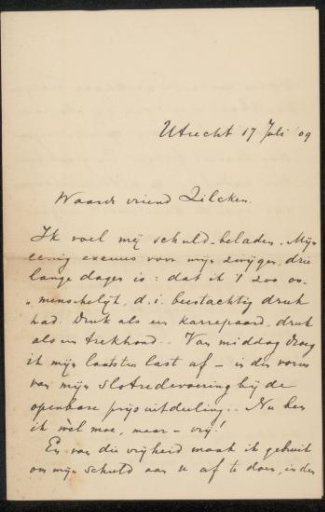 Utrecht 17 Juli '09
Waarde vriend Zilcken.
Ik voel mij schuld-beladen. Mijn
eenig excuus voor mijn zwijgen, drie
lange dagen is: dat ik 't zoo on-
„menschelijk, d.i. beestachtig druk
had. Druk als een karrepaard, druk
als een trekhond.. Van middag droeg
ik mijn laatsten last af – in den vorm
van mijn slotredevoering bij de
openbare prijsuitdeeling.. Nu ben
ik wèl moe, maar – vrij!
En van die vrijheid maak ik gebruik
om mijn schuld aan u af te doen, in den